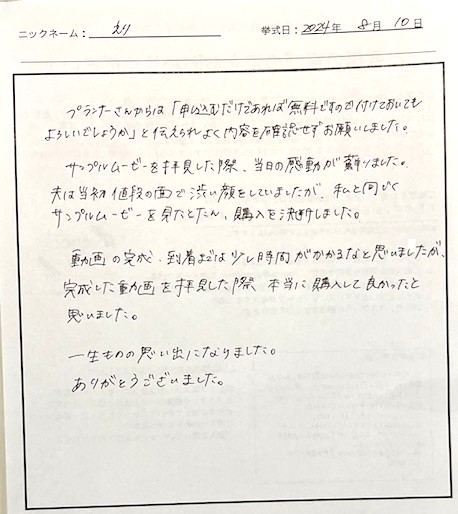 ニックネーム： えり 挙式日： 2024年 8月 10日
プランナーさんからは「申し込むだけであれば無料ですので付けておいても
よろしいでしょうか」と伝えられよく内容を確認せずお願いしました。
サンプルムービーを拝見した際、当日の感動が蘇りました。
夫は当初値段の面で渋い顔をしていましたが、私と同じく
サンプルムービーを見たとたん、購入を決断しました。
動画の完成、到着までは少し時間がかかるなと思いましたが、
完成した動画を拝見した際 本当に購入して良かったと
思いました。
一生ものの思い出になりました。
ありがとうございました。